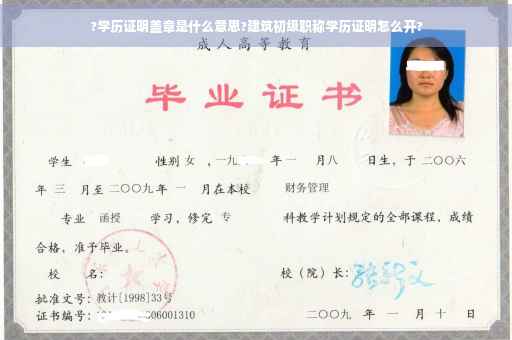 ?学历证明盖章是什么意思?建筑初级职称学历证明怎么开?
成人高等教育
毕业证书
学生 性别 女 ,一九 年 一 月八 日生，于 二〇〇六
年 三 月至 二〇〇九年 一 月在本校 财务管理
专业 函授 学习，修完 专 科教学计划规定的全部课程，成绩
合格，准予毕业。
校 名： 校（院）长：
批准文号：教计[1998]33号
证书编号： 06001310 二〇〇九 年 一 月 十 日